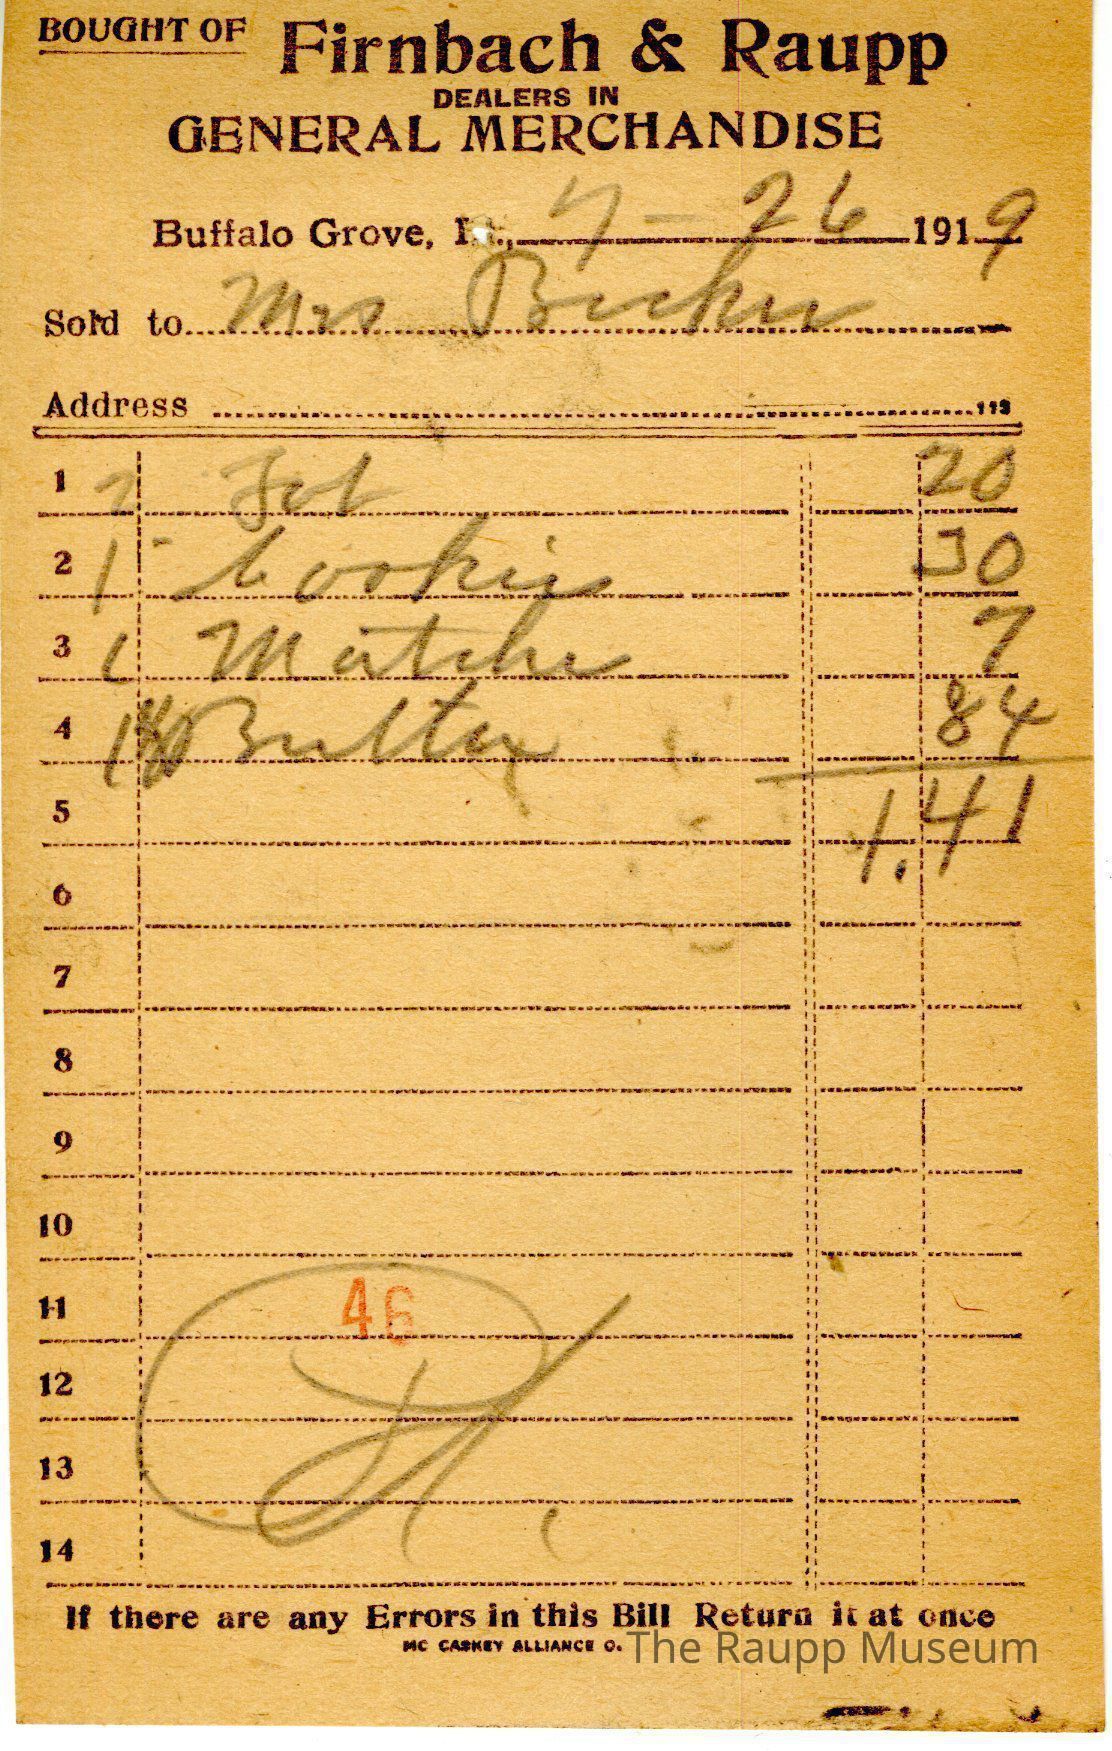 BOUGHT OF Firnbach & Raupp
DEALERS IN
GENERAL MERCHANDISE
Buffalo Grove, Ill., 7-26 1919
Sold to Mrs
Address
1 2 20
2 1 Cookies 30
3 1 Matches 7
4 Butter 84
5 1.41
6
7
8
9
10
11 46
12
13
14
If there are any Errors in this Bill Return it at once
MC CASKEY ALLIANCE O.
The Raupp Museum